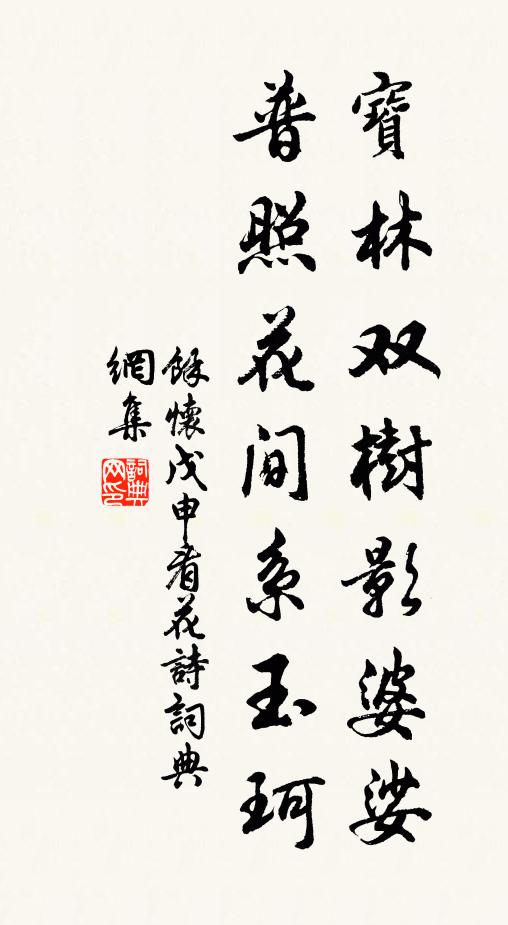 寶林双樹影婆娑
普照花間系玉珂
餘懷戊申看花詩詞典
網集
詞典
网印